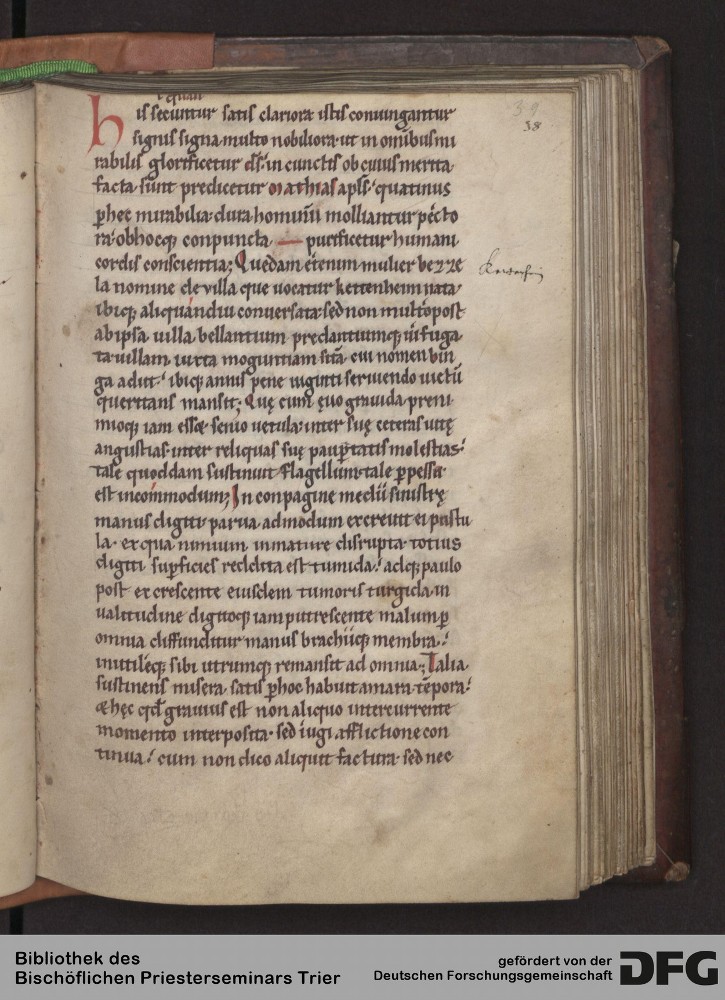 his secuntur satis clariora istis coniungantur
signis signa multo nobiliora ut in omnibus mi
rabilis glorificetur ds̄ in cunctis ob cuius merita
facta sunt predicetur mathias apls̄ quatinus
ꝑ hec mirabilia dura hominū molliantur pecto
ra obhocqꝫ conpuncta — purificetur humani
cordis conscientia; Quedam etenim mulier bezze
la nomine de villa que uocatur kettenheim nata
ibiqꝫ aliquandiu conuersata sed non multo post
ab ipsa uilla bellantium predantiumqꝫ ui fuga
ta uillam iuxta moguntiam sitā cui nomen bin
ga adiit ibiqꝫ annis pene uiginti seruiendo uictū
queritans mansit; Quę cum ęuo grauida preni
mioqꝫ iam esset senio uetula inter suę ceteras uitę
angustias inter reliquas suę paupertatis molestias
tale quoddam sustinuit flagellum tale ꝑpessa
est incommodum; In conpagine medii sinistrę
manus digiti parua admodum excreuit ei pustu
la ex qua nimium inmature disrupta totius
digiti suꝑficies reddita est tumida adqꝫ paulo
post excrescente eiusdem tumoris turgida in
ualitudine digitoqꝫ iam putrescente malum ꝑ
omnia diffunditur manus brachiiqꝫ membra
inutileqꝫ sibi utrumqꝫ remansit ad omnia; Talia
sustinens misera satis ꝑ hoc habuit amara tēpora
& hęc qđ grauius est non aliquo intercurrente
momento interposita sed iugi afflictione con
tinua cum non dico aliquit factura sed nec
39
38
Bibliothek des
Bischöflichen Priesterseminars Trier
gefördert von der
Deutschen Forschungsgemeinschaft
DFG